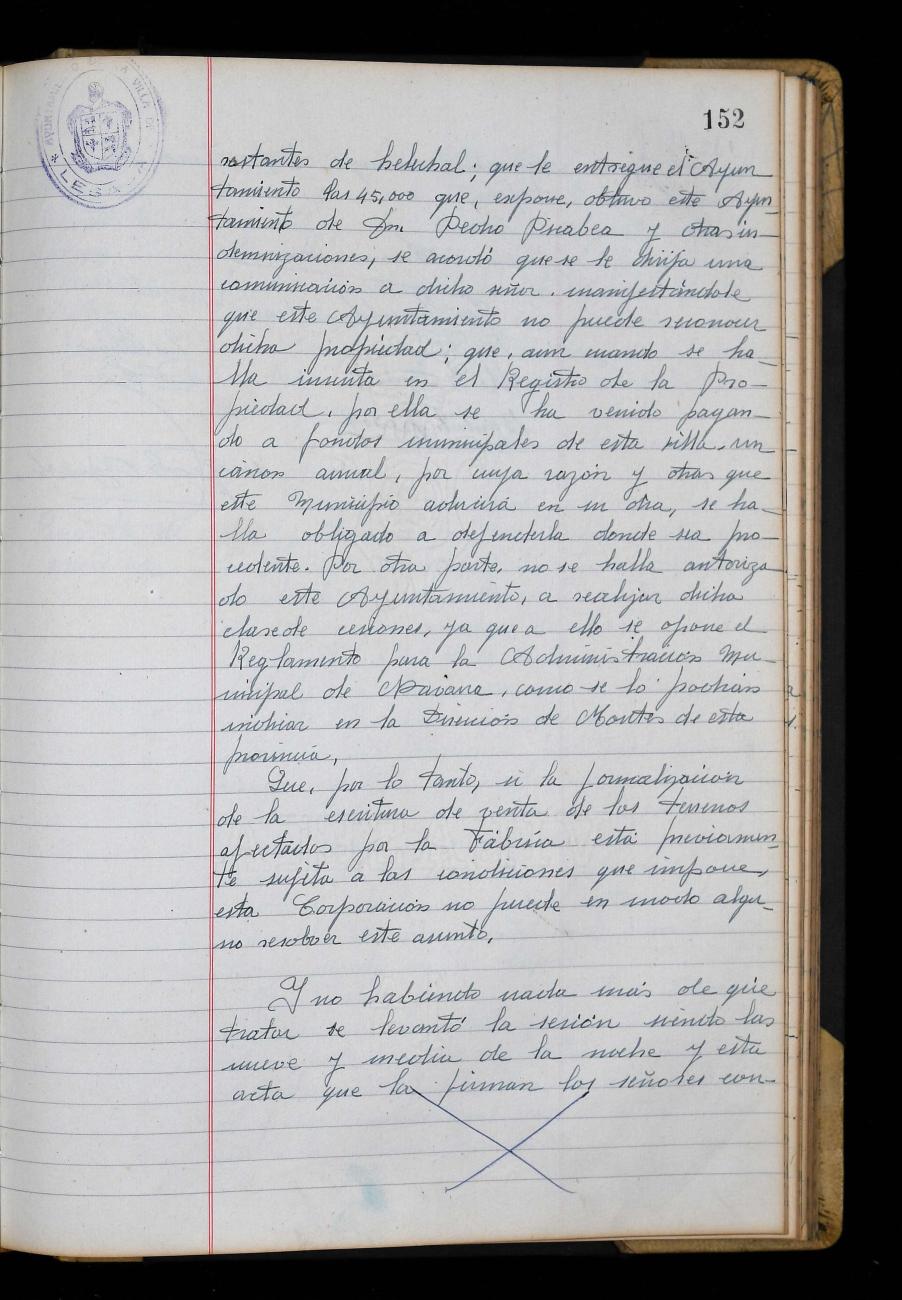 AYUNTAMIENTO DE LA VILLA DE
* LESACA *
152
restantes de helechal; que le entregue el Ayun
tamiento las 45,000 que, expone, obtuvo este Ayun-
tamiento de Dn. Pedro Picabea y otras in-
demnizaciones, se acordó que se le dirija una
comunicación a dicho señor manifestándole
que este Ayuntamiento no puede reconocer
dicha propiedad; que, aun cuando se ha-
lla inscrita en el Registro de la Pro-
piedad, por ella se ha venido pagan-
do a fondos municipales de esta villa, un
cánon anual, por cuya razón y otras que
este Municipio aducirá en su dia, se ha-
lla obligado a defenderla donde sea pro-
cedente. Por otra parte, no se halla autoriza
do este Ayuntamiento, a realizar dicha
clase de cesiones, ya que a ello se opone el
Reglamento para la Administración Mu-
nicipal de Navarra, como se lo podrán
indicar en la Dirección de Montes de esta
provincia.
Que, por lo tanto, si la formalización
de la escritura de venta de los terrenos
afectados por la Fábrica está previamen-
te sujeta a las condiciones que impone,
esta Corporación no puede en modo algu-
no resolver este asunto.
Y no habiendo nada más de que
tratar se levantó la sesión siendo las
nueve y media de la noche y esta
acta que la firman los señores con-